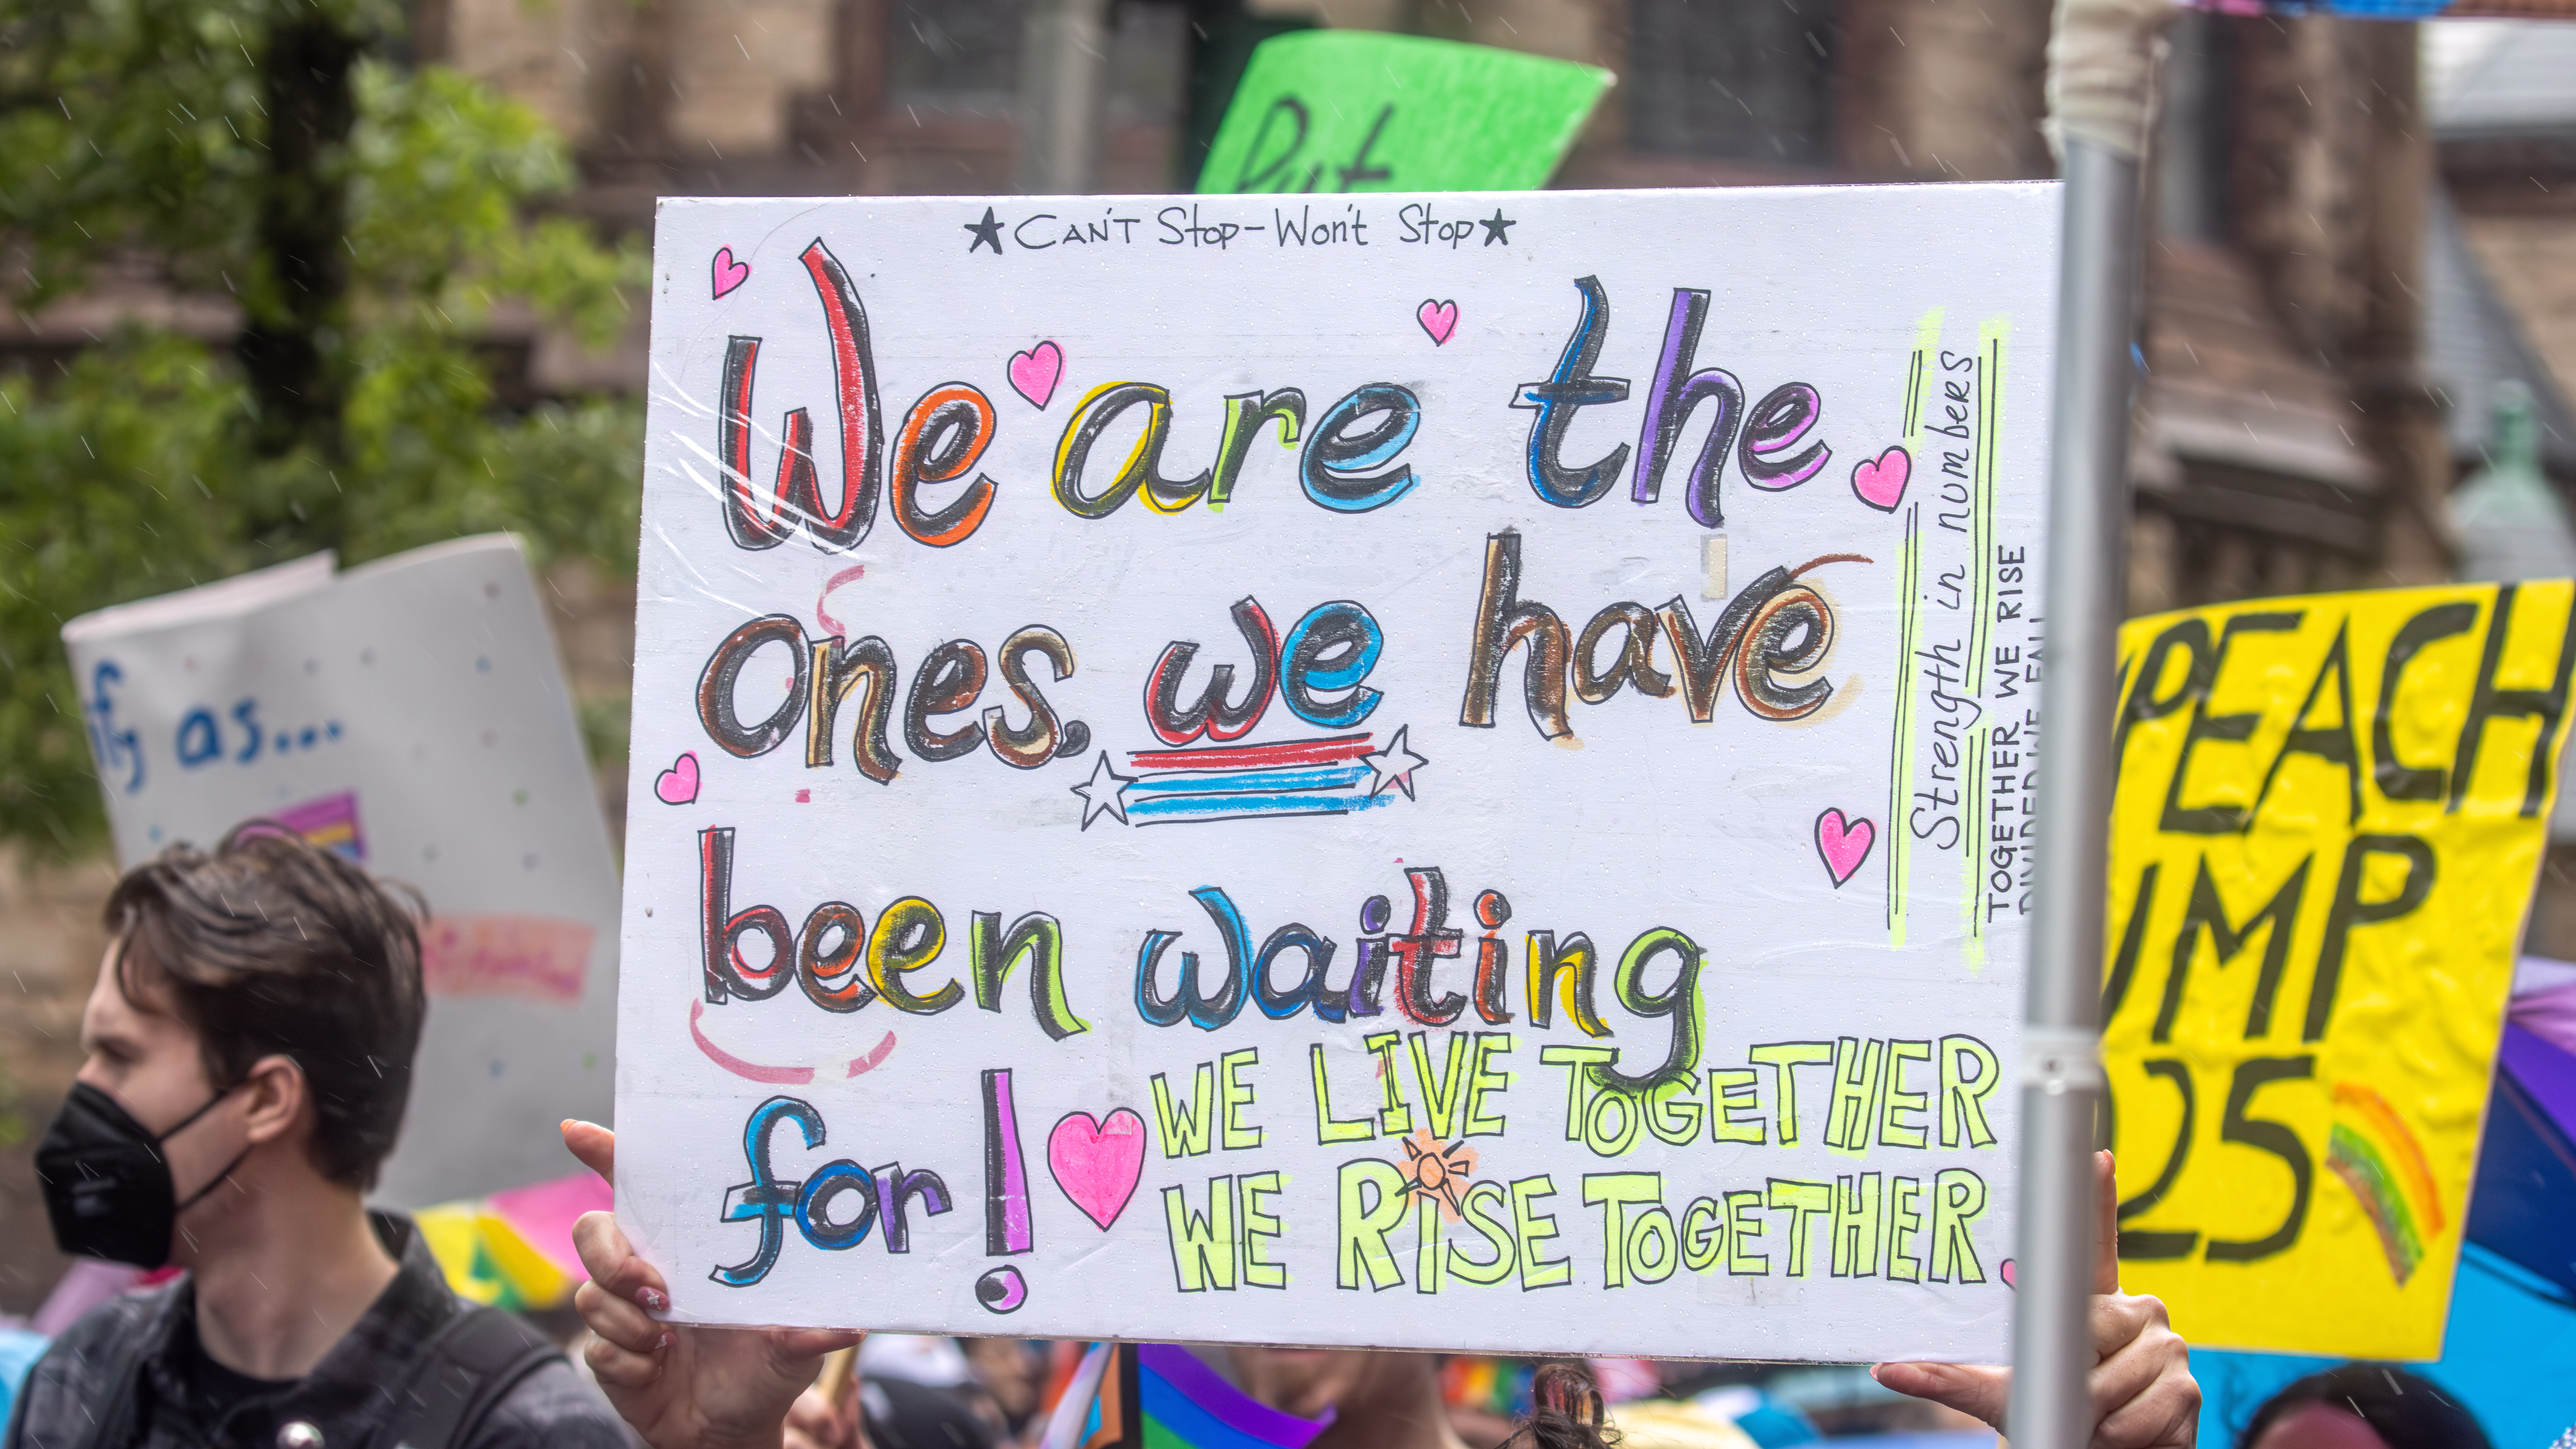 Put
★ CAN'T Stop - Won't Stop ★
We are the
ones, we have
been waiting
for!
WE LIVE TOGETHER
WE RISE TOGETHER
Strength in numbers
TOGETHER WE RISE
DIVIDED WE FALL
as...
PEACH
UMP
25